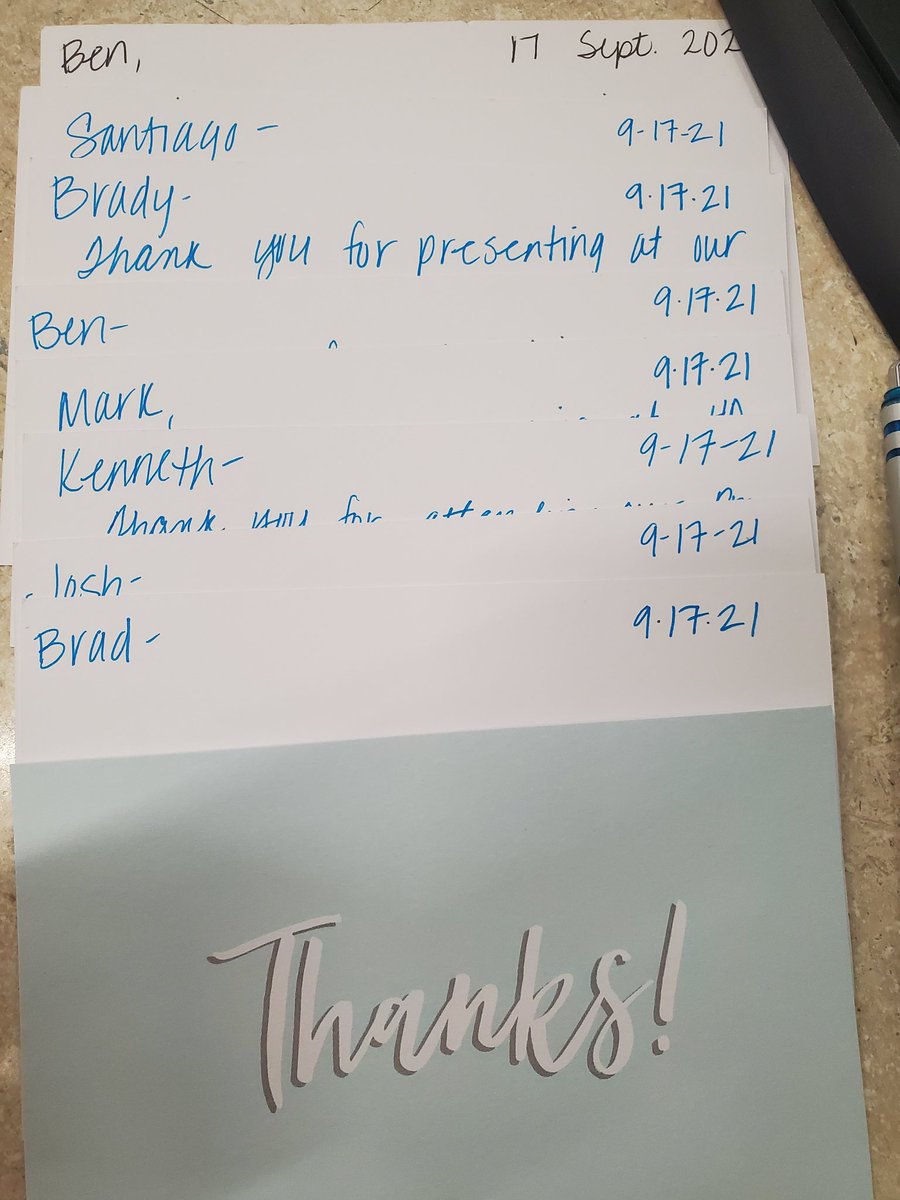 Ben, 17 Sept. 202
Santiago - 9-17-21
Brady- 9.17.21
Thank you for presenting at our
Ben- 9.17.21
Mark, 9.17.21
Kenneth- 9-17-21
Thank you for
Josh- 9-17-21
Brad- 9.17.21
Thanks!